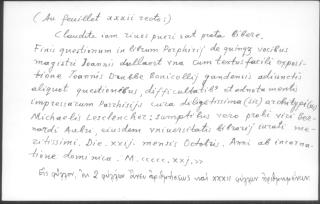 (Au feuillet xxxii recto:)
Claudite iam rivos pueri sat prata bibere.
Finis questionum in librum Porphirii de quinqz vocibus
magistri Joannis dullaert una cum textus facili exposi-
tione Joannis Drabbe Bonicollii gandensis adiunctis
aliquot questionibus, difficultatib9 et adnotamentis
impressarum Parhisijs cura diligetissima (sic) archetypi(
Michaelis Lesclencher: sumptibus vero probi viri Ber-
nardi Aubri, eiusdem universitatis librarij iurati me-
ritissimi. Die. xxij. mensis Octobris. Anni ab incarna-
tione dominica. M. ccccc. xxj. >>
Εις φύλλον, ἐκ 2 φύλλων ἄνευ ἀριθμήσεως καὶ xxxii φύλλων ἠριθμημένων.